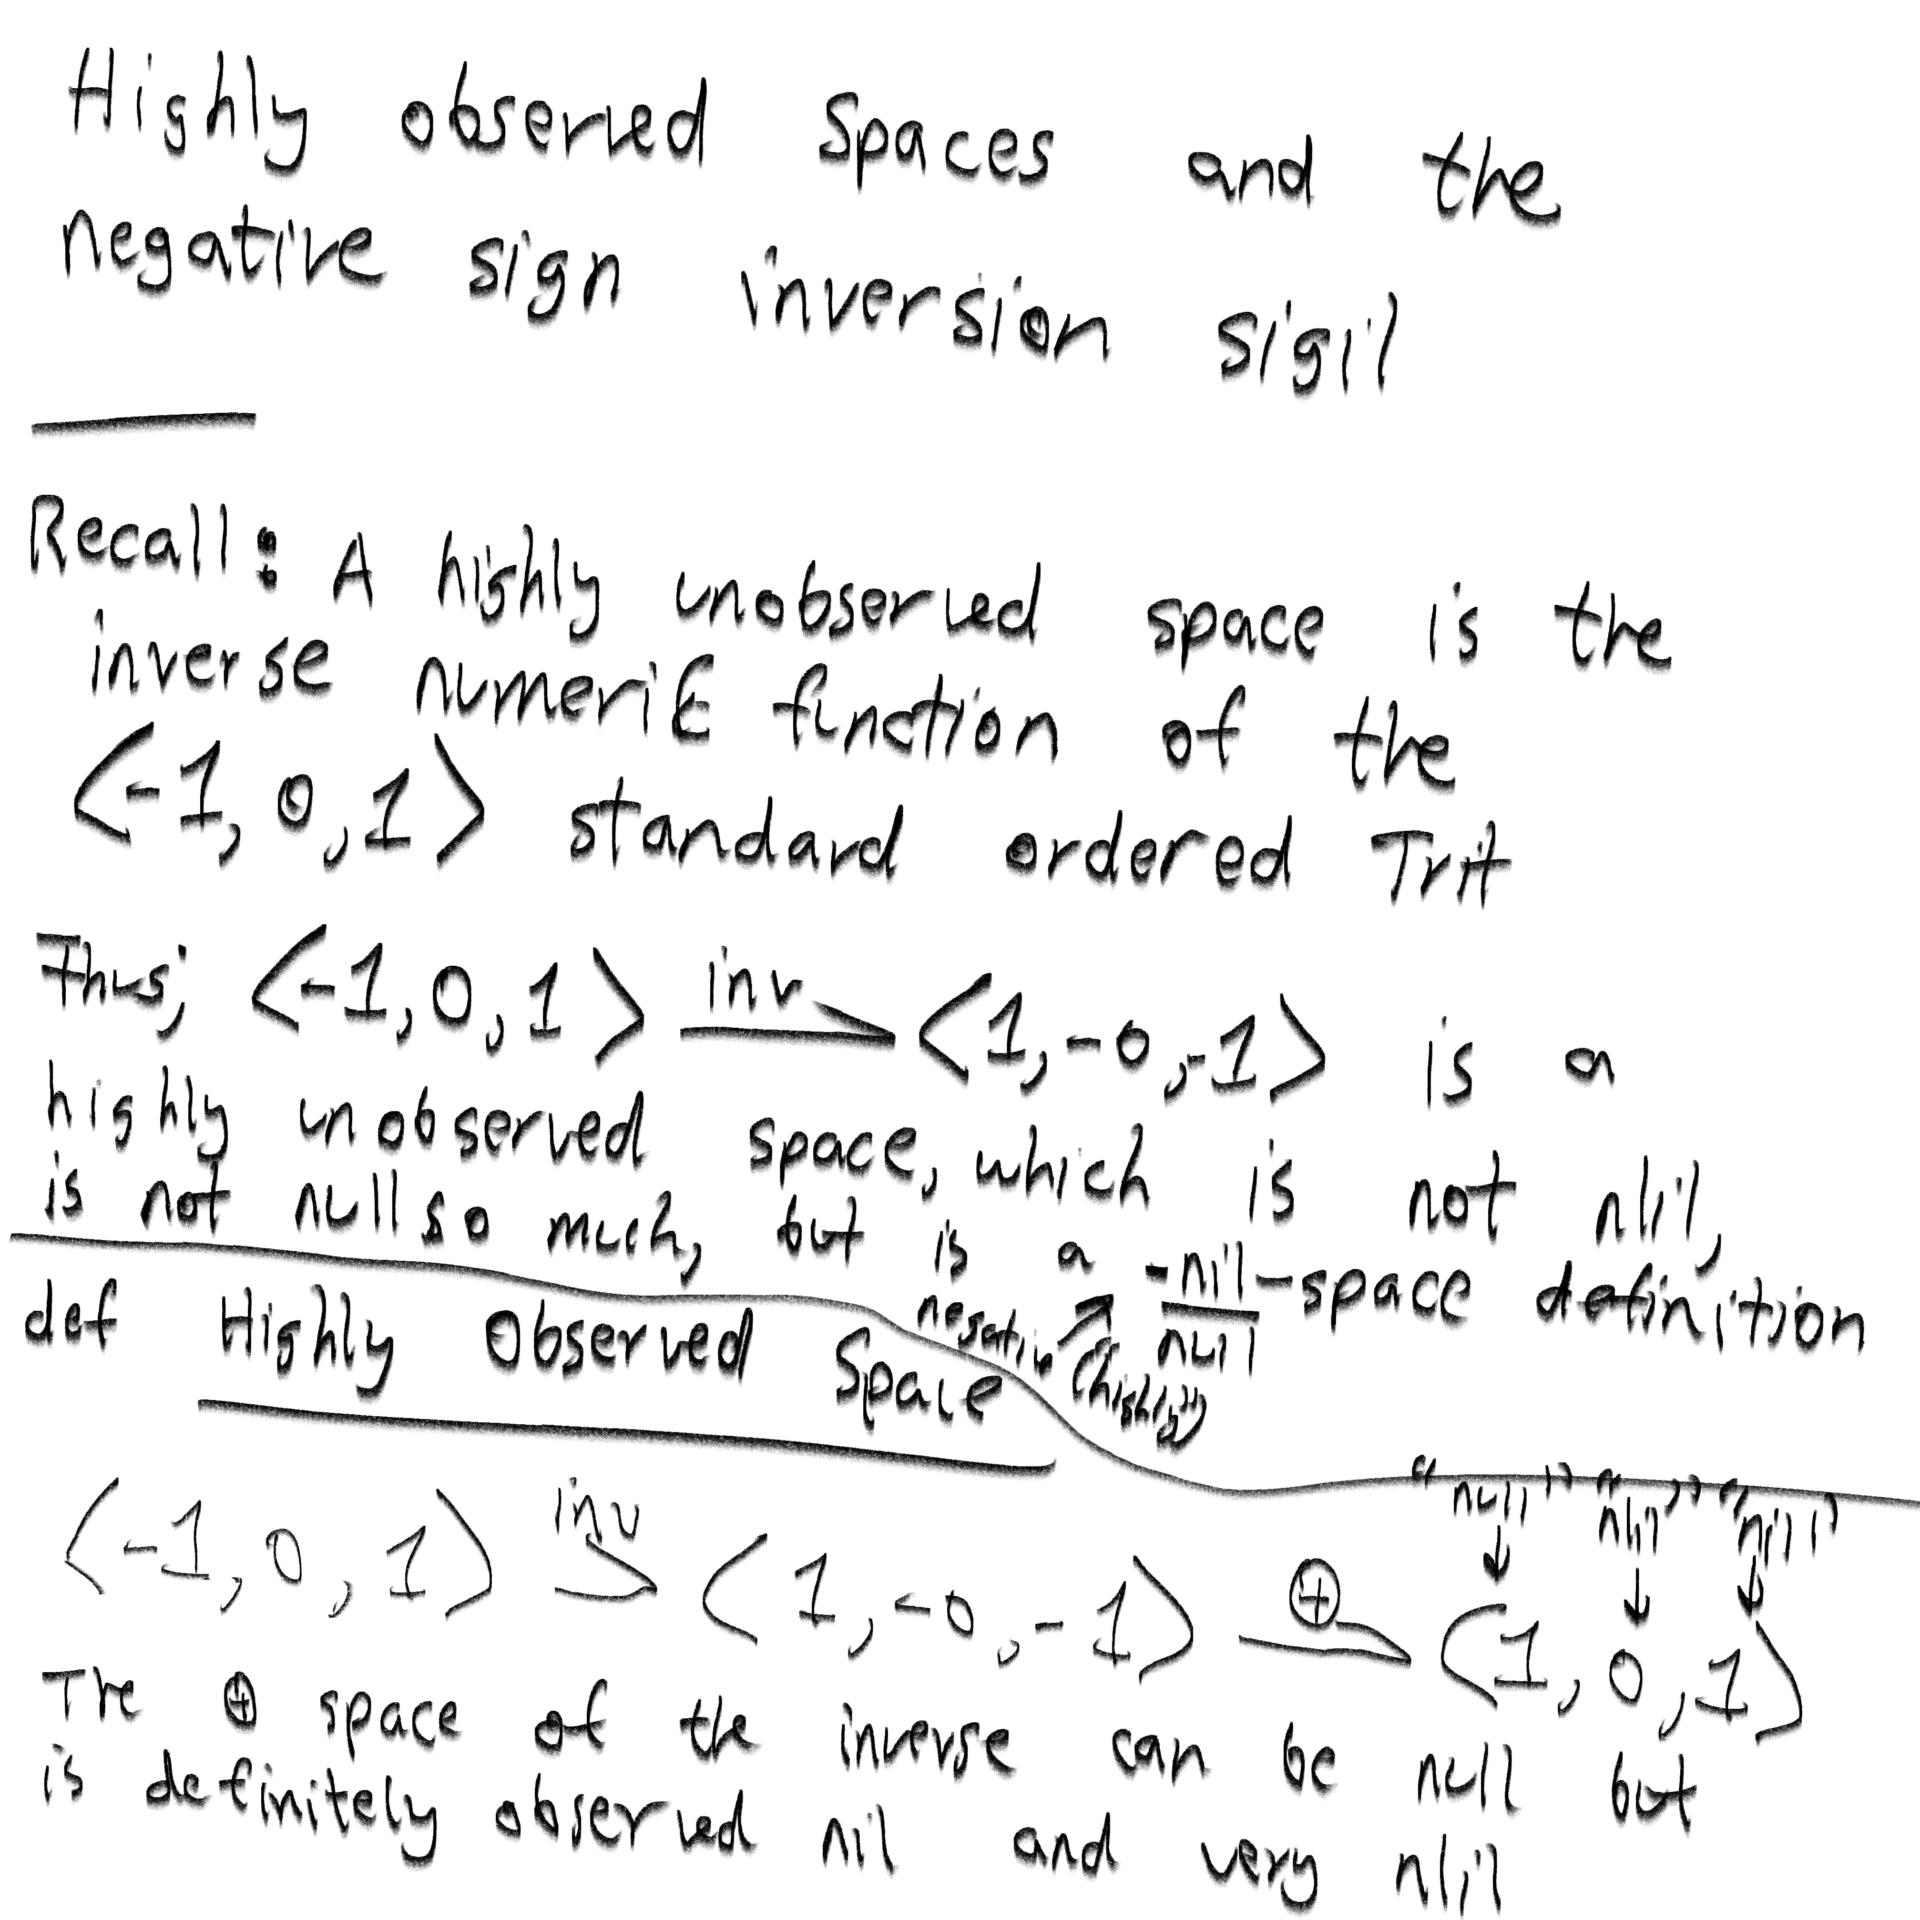 Highly observed Spaces and the
negative sign inversion sigil
Recall: A highly unobserved space is the
inverse numeriE function of the
⟨-1, 0, 1⟩ standard ordered Trit
Thus; ⟨-1, 0, 1⟩ inv ⇀ ⟨1, -0, -1⟩ is a
highly unobserved space, which is not nlil,
is not null so much, but is a -nil/null-space definition
negative (highly)
def Highly Observed Space
"null" "nlil" "nill"
↓ ↓ ↓
⟨-1, 0, 1⟩ inv ⇀ ⟨1, -0, -1⟩ ⊕ ⇀ ⟨1, 0, 1⟩
The ⊕ space of the inverse can be null but
is definitely observed nil and very nlil